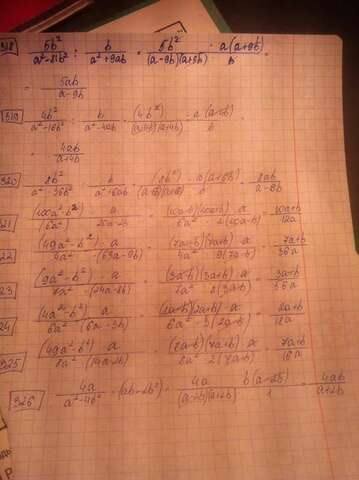 318 5b²/(a²-81b²) : b/(a²+9ab) = 5b²/((a-9b)(a+9b)) · a(a+9b)/b =
= 5ab/(a-9b)
319 4b²/(a²-16b²) : b/(a²-4ab) = (4b²)/((a-4b)(a+4b)) · a(a-4b)/b
= 4ab/(a+4b)
320 8b²/(a²-36b²) : b/(a²+6ab) = a(a+6b)/b = 8ab/(a-6b)
21 (100a²-b²)/(6a²) · a/ = (10a-b)(10a+b) a/(6a² · 2(10a-b)) = (10a+b)/(12a)
22 (49a²-b²)/(4a²) · a/(63a-9b) = (7a-b)(7a+b) a/(4a² · 9(7a-b)) = (7a+b)/(36a)
23 (9a²-b²)/(7a²) · a/(24a-8b) = (3a-b)(3a+b) a/(7a² · 8(3a-b)) = (3a+b)/(56a)
24 (4a²-b²)/(6a²) · a/(6a-3b) = (2a-b)(2a+b) a/(6a² · 3(2a-b)) = (2a+b)/(18a)
325 (49a²-b²)/(8a²) · a/(14a-2b) = (7a-b)(7a+b) a/(8a² · 2(7a-b)) = (7a+b)/(16a)
326 4a/(a²-4b²) · (ab-2b²) = 4a/((a-2b)(a+2b)) · b(a-2b)/1 = 4ab/(a+2b)